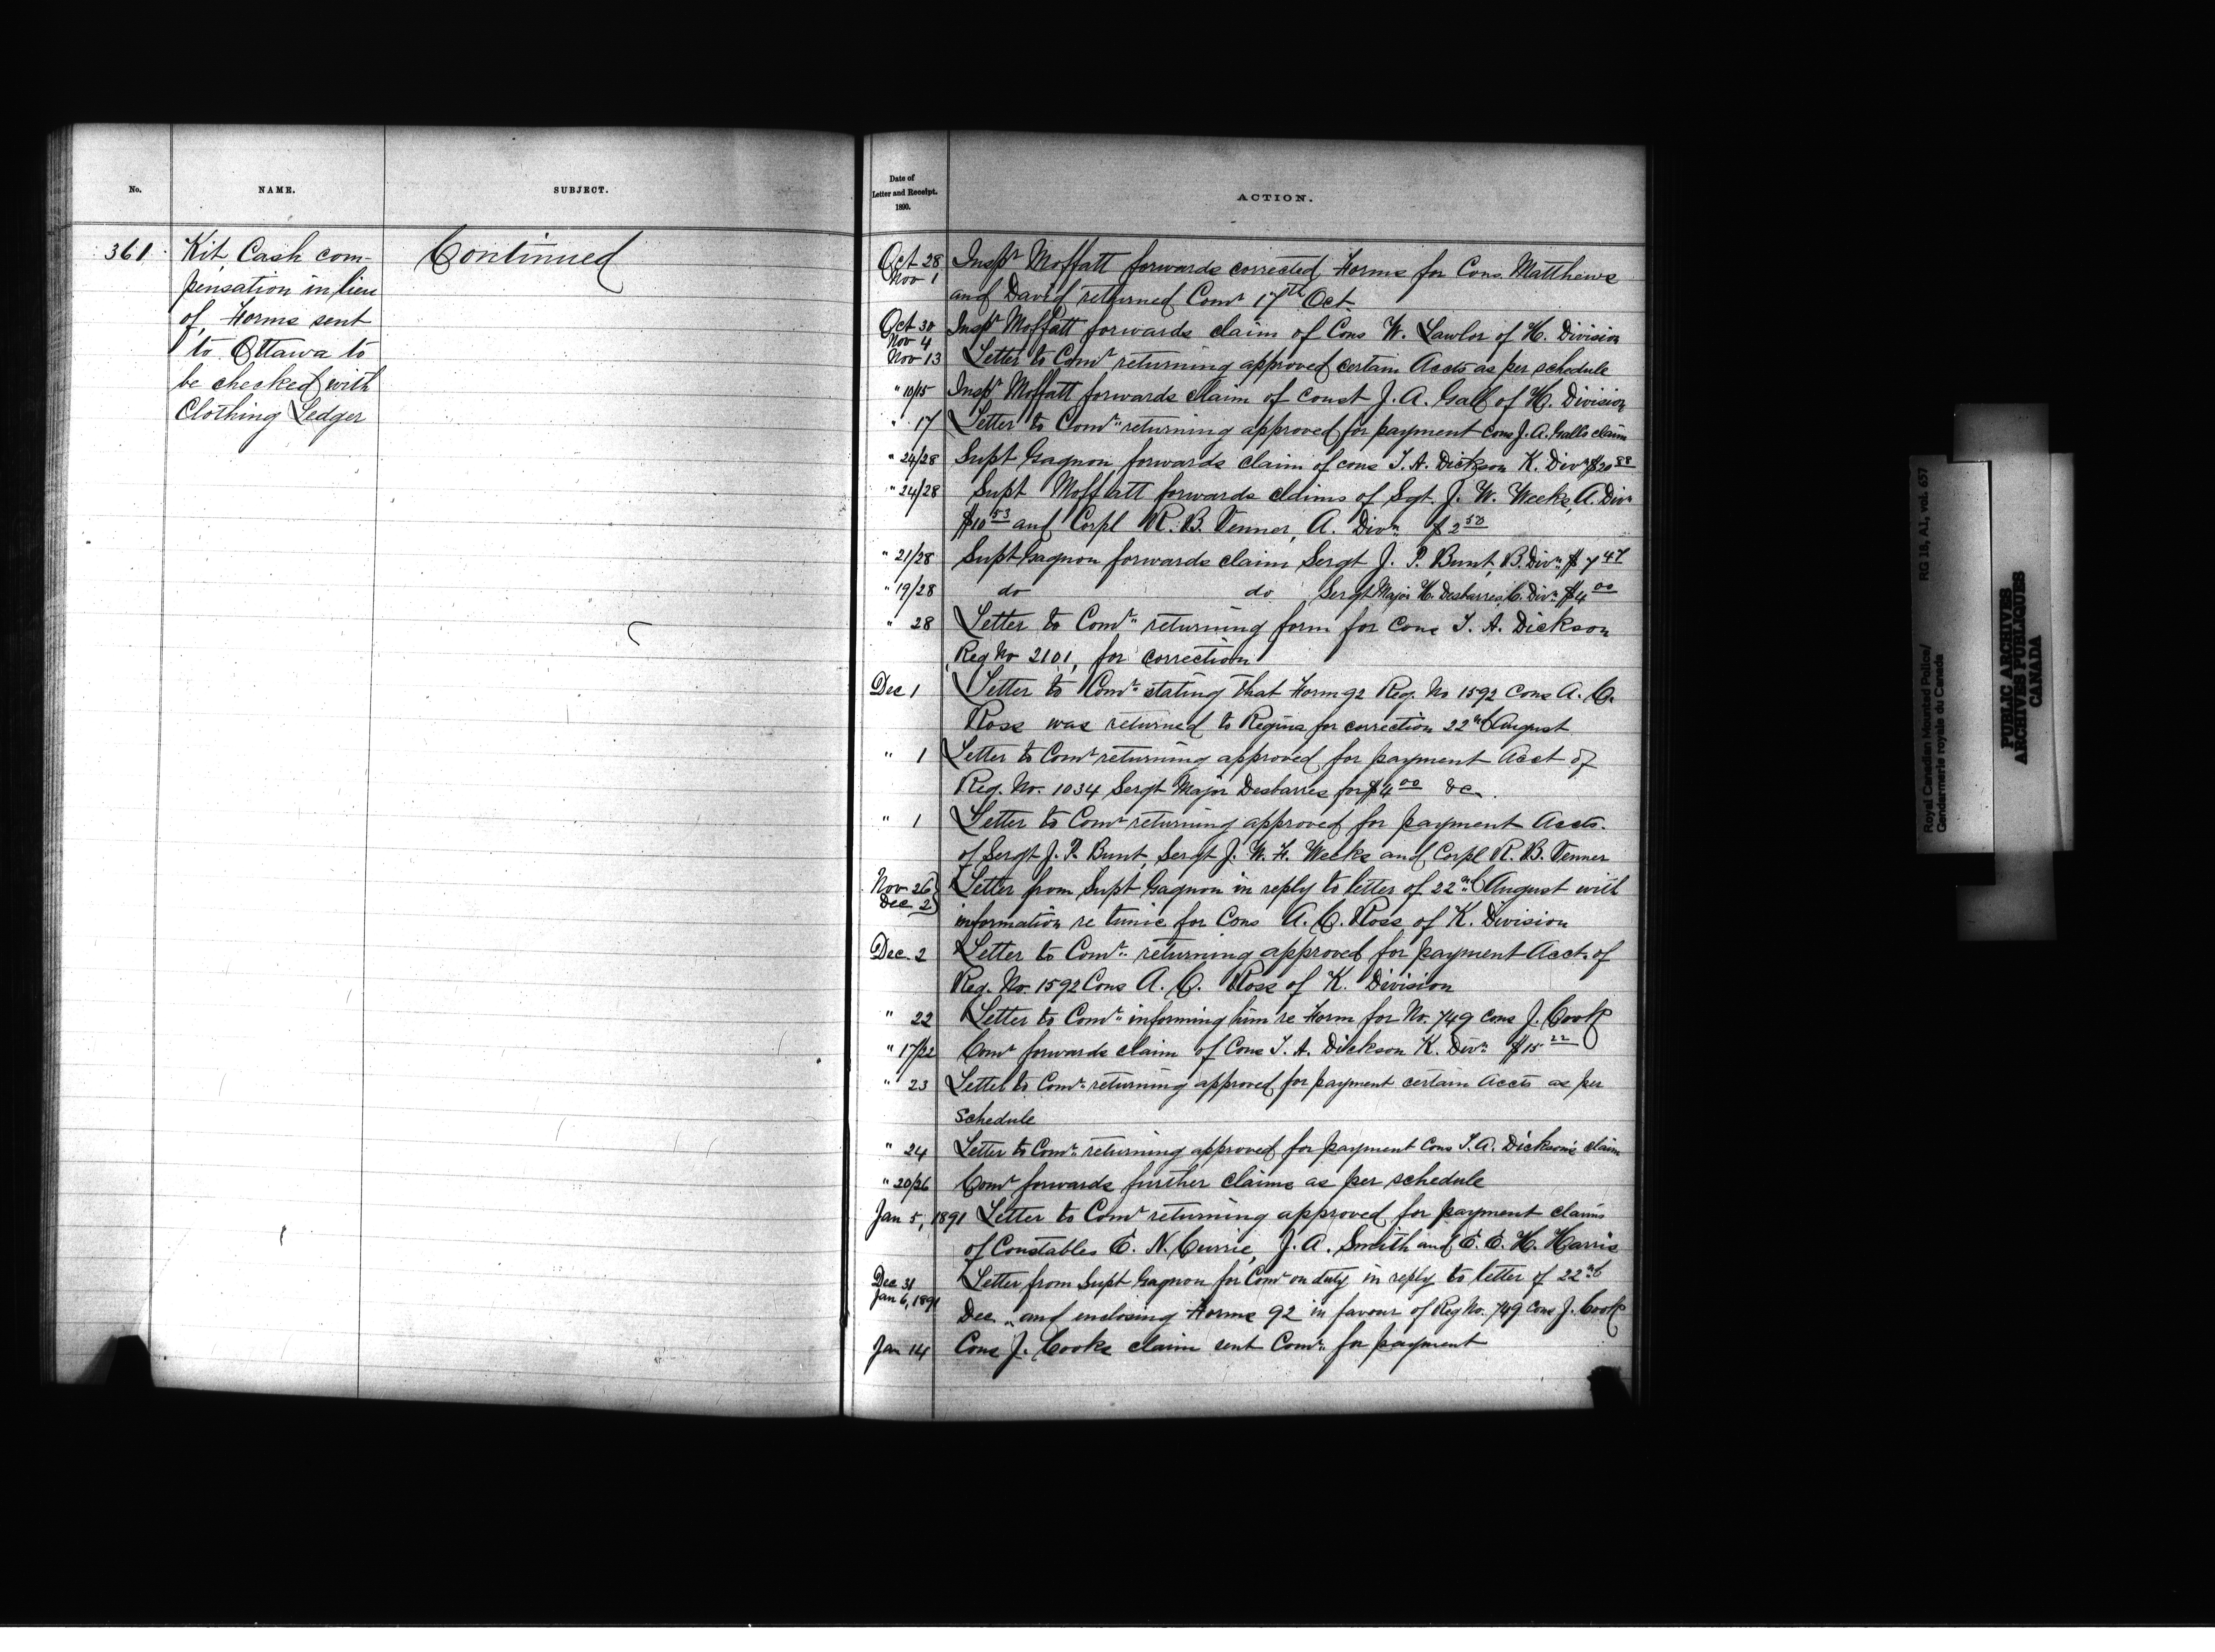 No.
NAME.
SUBJECT.
361
Kit Cash com-
pensation in lieu
of, Forms sent
to Ottawa to
be checked with
Clothing Ledger
Continued
Date of
Letter and Receipt.
1890.
ACTION.
Oct 28 Inspr Moffatt forwards corrected Forms for Cons. Matthews
Nov 1
and David returned Comr 17th Oct
Oct 30 Inspr Moffatt forwards claim of Cons W. Lawlor of H. Division
Nov 4
Nov 13 Letter to Comr returning approved certain Accts as per schedule
" 10/15 Inspr Moffatt forwards claim of Const J. A. Gall of H. Division
" 17 Letter to Comr returning approved for payment Cons J. A. Galls claim
" 24/28 Supt Gagnon forwards claim of cons T. A. Dickson K. Divn $20 88
" 24/28 Supt Moffatt forwards claims of Sgt. J. W. Weeks, A. Divn
$10 53 and Corpl R. B. Venner, A. Divn $2 50
" 21/28 Supt Gagnon forwards claim Sergt J. P. Bunt, B. Divn $7 47
" 19/28 do do Sergt Major H. Desbarres, C. Divn $4 00
" 28 Letter to Comr returning form for Cons T. A. Dickson
Reg No 2101, for correction
Dec 1 Letter to Comr stating that Form 92 Reg. No 1592 Cons A. C.
Ross was returned to Regina for correction 22nd August
" 1 Letter to Comr returning approved for payment Acct of
Reg. No. 1034 Sergt Major Desbarres for $4 00 &c.
" 1 Letter to Comr returning approved for payment Accts.
of Sergt J. P. Bunt, Sergt J. W. H. Weeks and Corpl R. B. Venner
Nov 26 Letter from Supt Gagnon in reply to letter of 22nd August with
Dec 2
information re tunic for Cons A. C. Ross of K. Division
Dec. 2 Letter to Comr returning approved for payment Acct. of
Reg. No. 1592 Cons A. C. Ross of K. Division
" 22 Letter to Comr informing him re Form for No. 749 Cons J. Cook
" 17/22 Comr forwards claim of Cons T. A. Dickson K. Divn $15 22
" 23 Letter to Comr returning approved for payment certain Accts as per
schedule
" 24 Letter to Comr returning approved for payment Cons T. A. Dickson's claim
" 20/26 Comr forwards further claims as per schedule
Jan 5, 1891 Letter to Comr returning approved for payment claims
of Constables E. N. Currie, J. A. Smith and E. E. H. Harris
Dec 31 Letter from Supt Gagnon for Comr on duty in reply to letter of 22nd
Jan 6, 1891
Dec. and enclosing Forms 92 in favour of Reg No. 749 Cons J. Cook
Jan 14 Cons J. Cooks claim sent Comr for payment
Royal Canadian Mounted Police/ RG 18, A1, vol. 657
Gendarmerie royale du Canada
PUBLIC ARCHIVES
ARCHIVES PUBLIQUES
CANADA